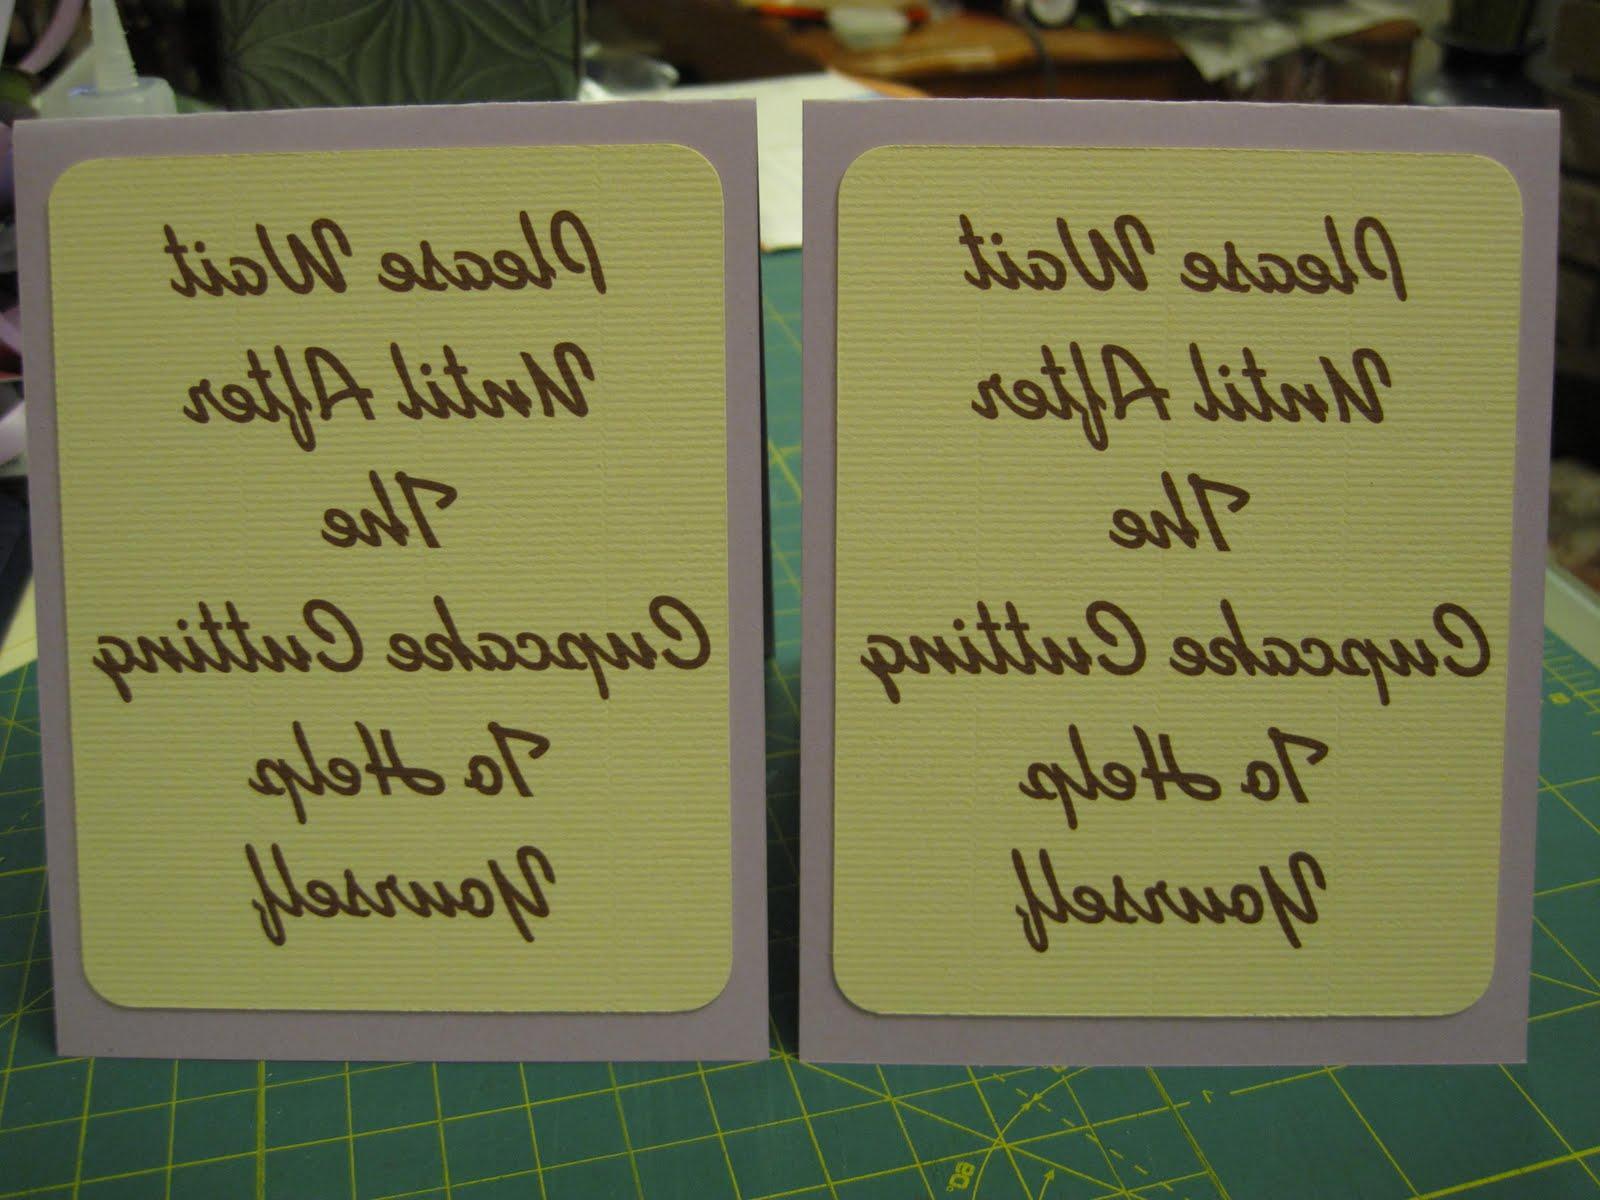 Please Wait
Until After
The
Cupcake Cutting
To Help
Yourself
Please Wait
Until After
The
Cupcake Cutting
To Help
Yourself